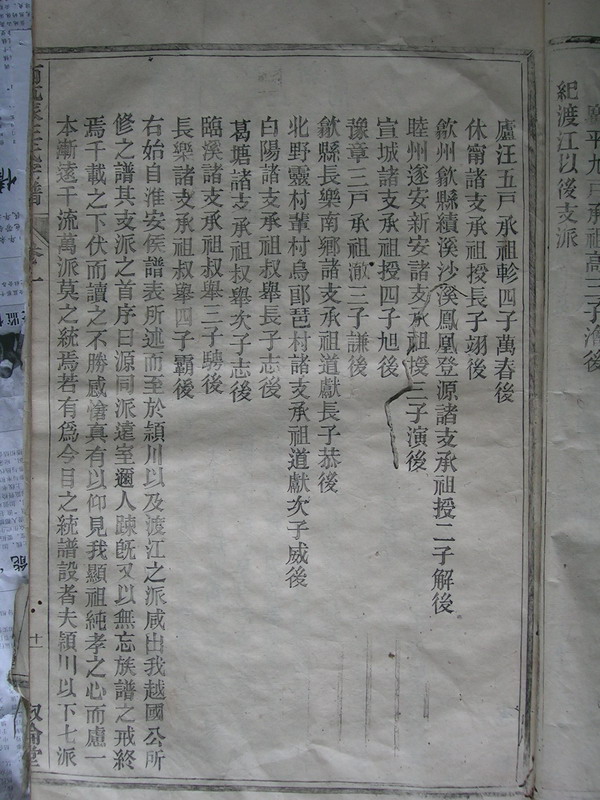 平九戸承祖高三子濬後
紀渡江以後支派
廬汪五戸承祖軫四子萬春後
休甯諸支承祖授長子翊後
歙州歙縣績溪沙溪鳳凰登源諸支承祖授二子解後
睦州遂安新安諸支承祖授三子演後
宣城諸支承祖授四子旭後
豫章三戸承祖澈三子謙後
歙縣長樂南鄉諸支承祖道獻長子恭後
北野靈村葦村烏郎琶村諸支承祖道獻次子威後
白陽諸支承祖叔舉長子志後
葛塘諸支承祖叔舉次子志後
臨溪諸支承祖叔舉三子騁後
長樂諸支承祖叔舉四子霸後
右始自淮安侯譜表所述而至於潁川以及渡江之派咸出我越國公所
修之譜其支派之首序曰源同派遠室邇人疎旣又以無忘族譜之戒終
焉千載之下伏而讀之不勝感愴真有以仰見我顯祖純孝之心而慮一
本漸遠千流萬派莫之統焉若有爲今日之統譜設者夫潁川以下七派
十一
叙倫堂